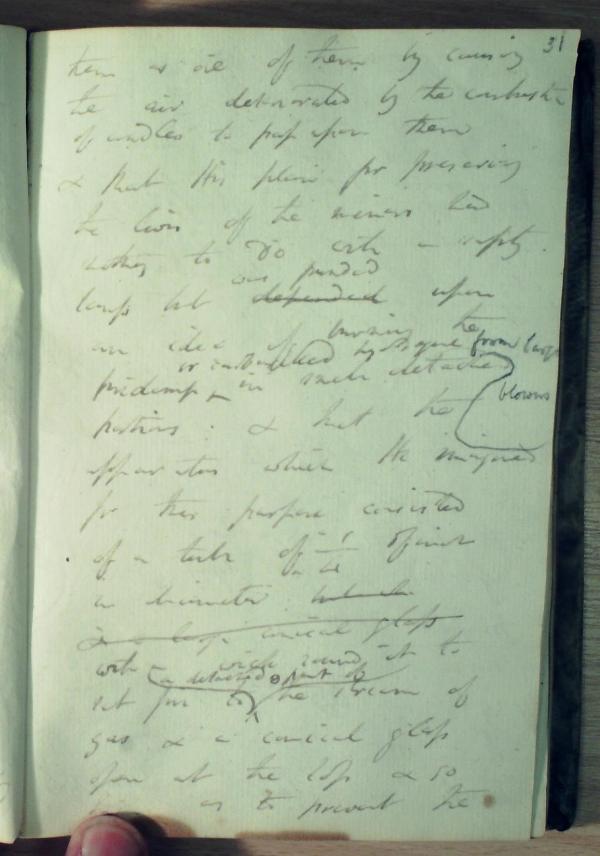 31
them or die of them by causing
the air deteriorated by the combustion
of candles to pass upon them
& that his plan for preserving
the lives of the miners had
nothing to do with a safety
was founded
lamps but depended upon
an idea of burning the
from large
blowers
firedamp in such detached
portions: & that the
apparatus which He imagined
for this purpose consisted
of a tube of 1 of an inch
in diameter which
& a large conical glass
with wick round it to
a detached part of
set fire to the stream of
gas & a conical glass
open at the top & so
as to prevent the